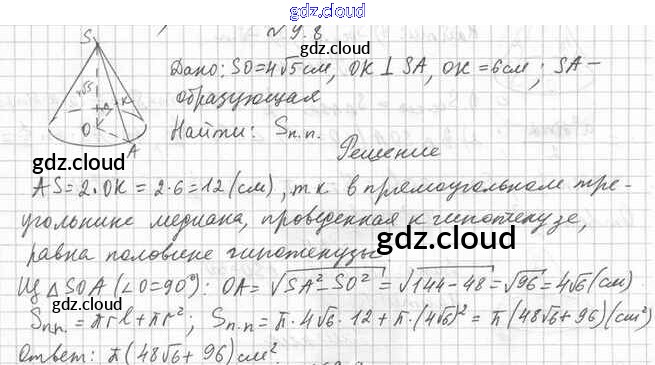 gdz.cloud
№ 9.8
gdz.cloud
Дано: SO=4√5см, OK ⊥ SA, OK = 6см; SA –
образующая
Найти: Sп.п.
S
O
K
A
gdz.cloud
gdz.cloud
Решение
AS = 2·OK = 2·6 = 12 (см), тк в прямоугольном тре-
угольнике медиана, проведенная к гипотенузе,
равна половине гипотенузы
gdz.cloud
Из △SOA (∠O=90°): OA = √SA²–SO² = √144–48 = √96 = 4√6 (см)
gdz.cloud
gdz.cloud
Sпп. = πrl + πr²; Sп.п = π·4√6·12 + π·(4√6)² = π(48√6+96)(см²)
Ответ: π(48√6 + 96) см²
gdz.cloud
gdz.cloud